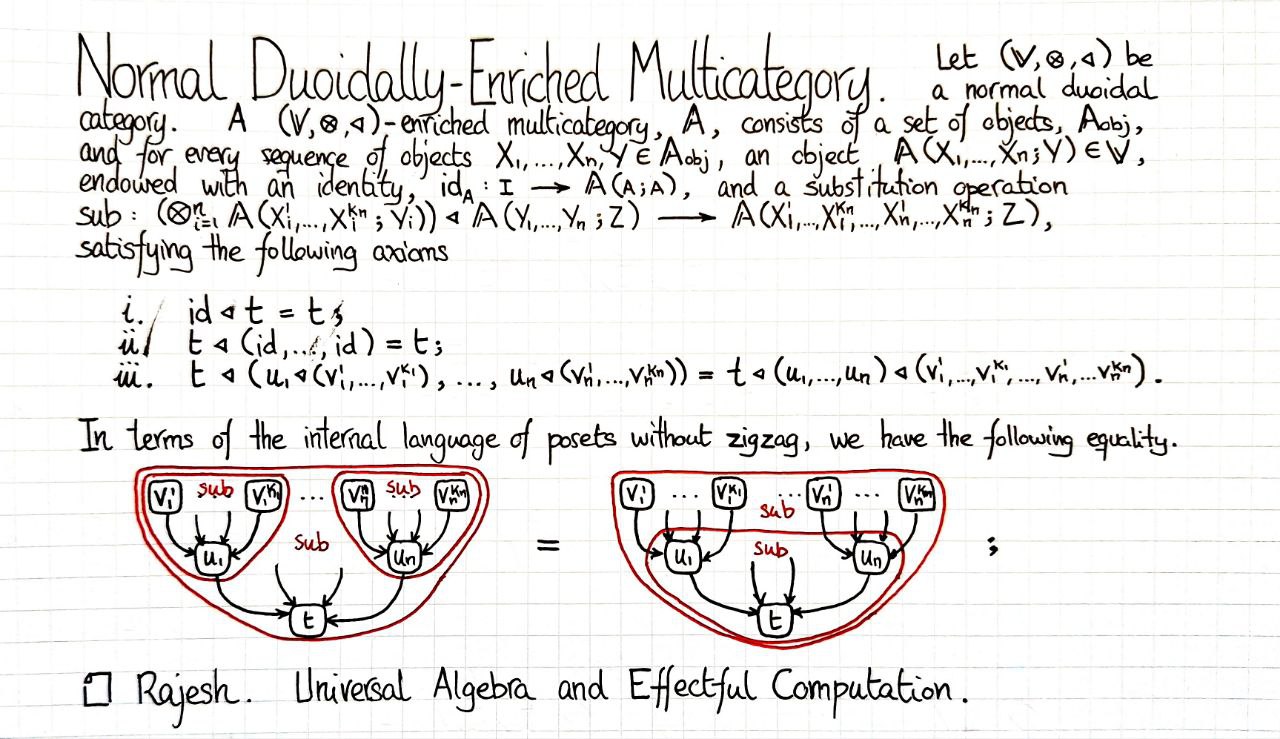 Normal Duoidally-Enriched Multicategory. Let (𝕍,⊗,◁) be
a normal duoidal
category. A (𝕍,⊗,◁)-enriched multicategory, 𝔸, consists of a set of objects, 𝔸obj,
and for every sequence of objects X₁,...,Xₙ,Y ∈ 𝔸obj, an object 𝔸(X₁,...,Xₙ;Y) ∈ 𝕍,
endowed with an identity, id_A : I → 𝔸(A;A), and a substitution operation
sub : (⊗ⁿᵢ₌₁ 𝔸(Xᵢ¹,...,Xᵢ^{kₙ};Yᵢ)) ◁ 𝔸(Y₁,...,Yₙ;Z) → 𝔸(X₁¹,...,X₁^{kₙ},...,Xₙ¹,...,Xₙ^{kₙ};Z),
satisfying the following axioms
i. id ◁ t = t;
ii. t ◁ (id,...,id) = t;
iii. t ◁ (u₁◁(v₁¹,...,v₁^{k₁}),..., uₙ◁(vₙ¹,...,vₙ^{kₙ})) = t◁(u₁,...,uₙ)◁(v₁¹,...,v₁^{k₁},...,vₙ¹,...vₙ^{kₙ}).
In terms of the internal language of posets without zigzag, we have the following equality.
v₁¹ sub v₁^{k₁} ... sub vₙ^{kₙ} v₁¹ ... v₁^{k₁} ... vₙ¹ ... vₙ^{kₙ}
sub
u₁ sub uₙ = u₁ sub uₙ ;
t t
□ Rajesh. Universal Algebra and Effectful Computation.